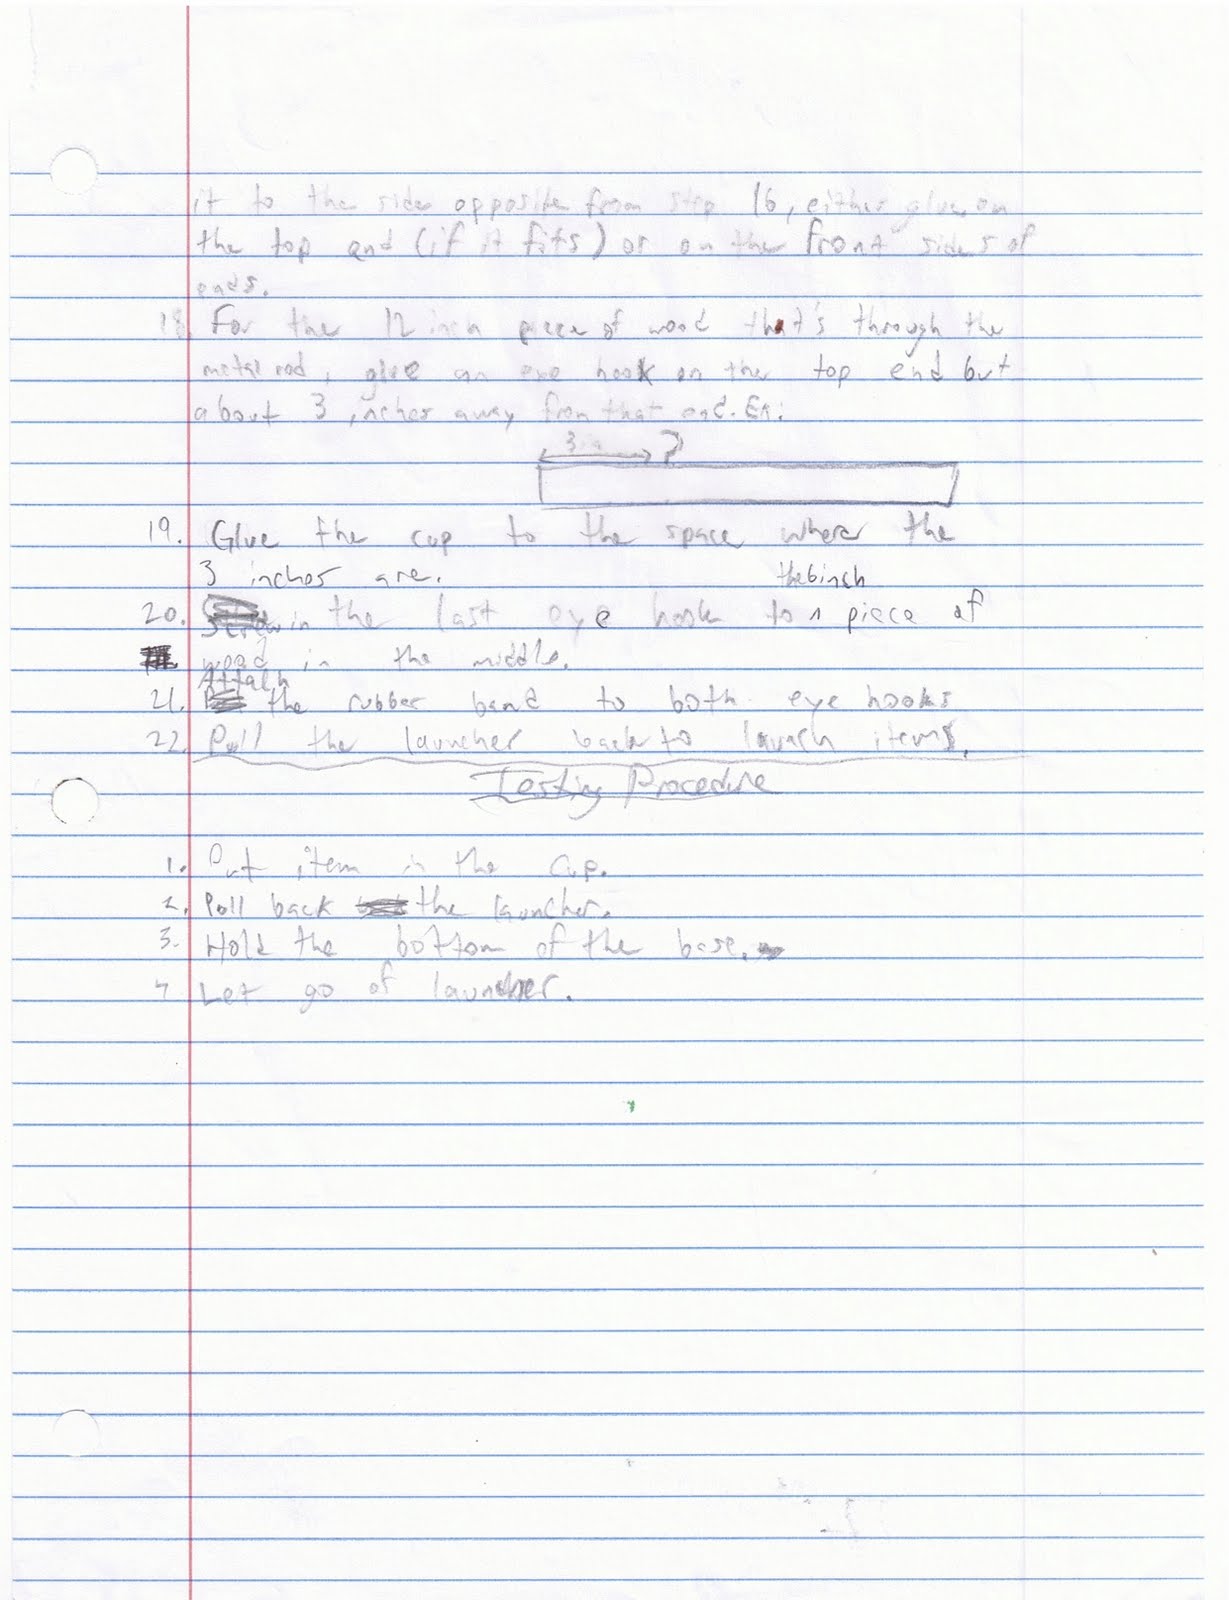 it to the side opposite from step 16, either glue on
the top end (if it fits) or on the front sides of
ends.
18. For the 12 inch piece of wood that's through the
metal rod, glue an eye hook on the top end but
about 3 inches away from that end. Ex:
3in
19. Glue the cup to the space where the
3 inches are.
20. Screw in the last eye hook to the 6 inch piece of
wood in the middle.
21. Attach the rubber band to both eye hooks
22. Pull the launcher back to launch items.
Testing Procedure
1. Put item in the cup.
2. Pull back the launcher.
3. Hold the bottom of the base.
4. Let go of launcher.